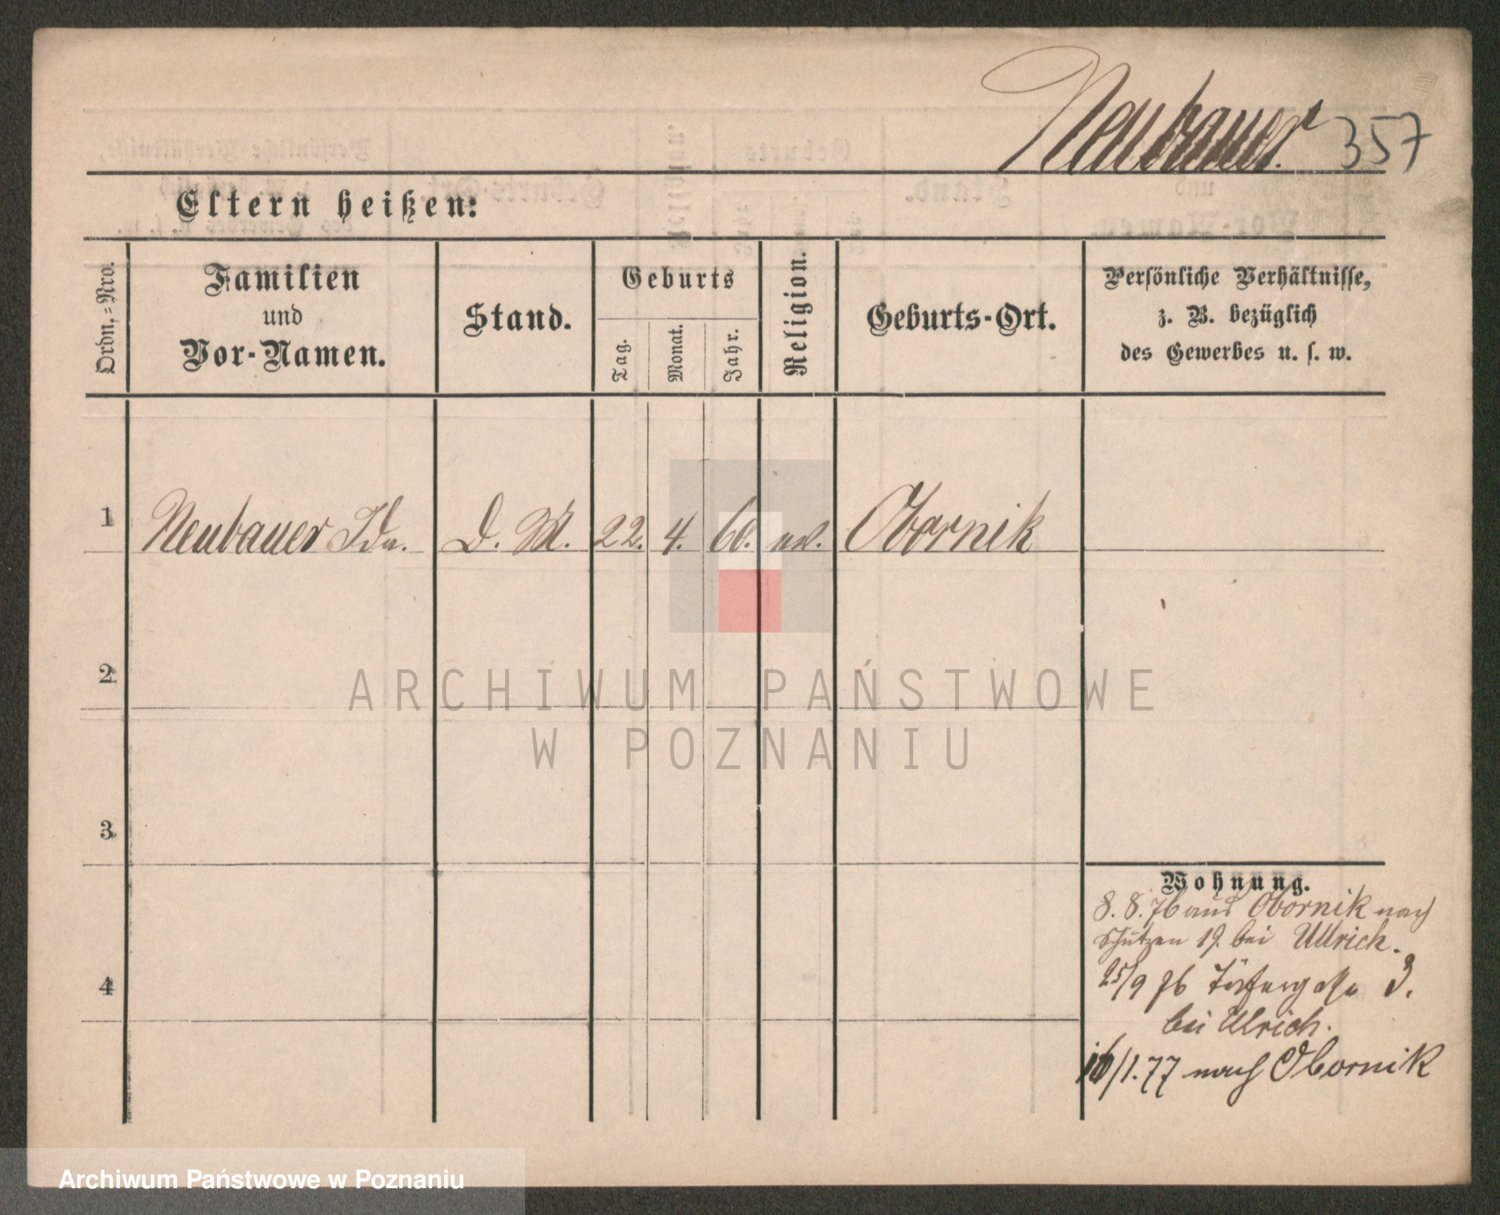 Neubauer. 357
Eltern heißen:
Ordn.-Nro.
Familien
und
Vor-Namen.
Stand.
Geburts
Tag.
Monat.
Jahr.
Religion.
Geburts-Ort.
Persönliche Verhältnisse,
z. B. bezüglich
des Gewerbes u. s. w.
1 Neubauer Ida. D. M. 22. 4. 60. ev. Obornik
2
3
4
Wohnung.
8. 8. 76 aus Obornik nach
Schützen 19. bei Ullrich.
25/9 76 3.
bei Ulrich.
16/1. 77 nach Obornik
ARCHIWUM PAŃSTWOWE
W POZNANIU
Archiwum Państwowe w Poznaniu